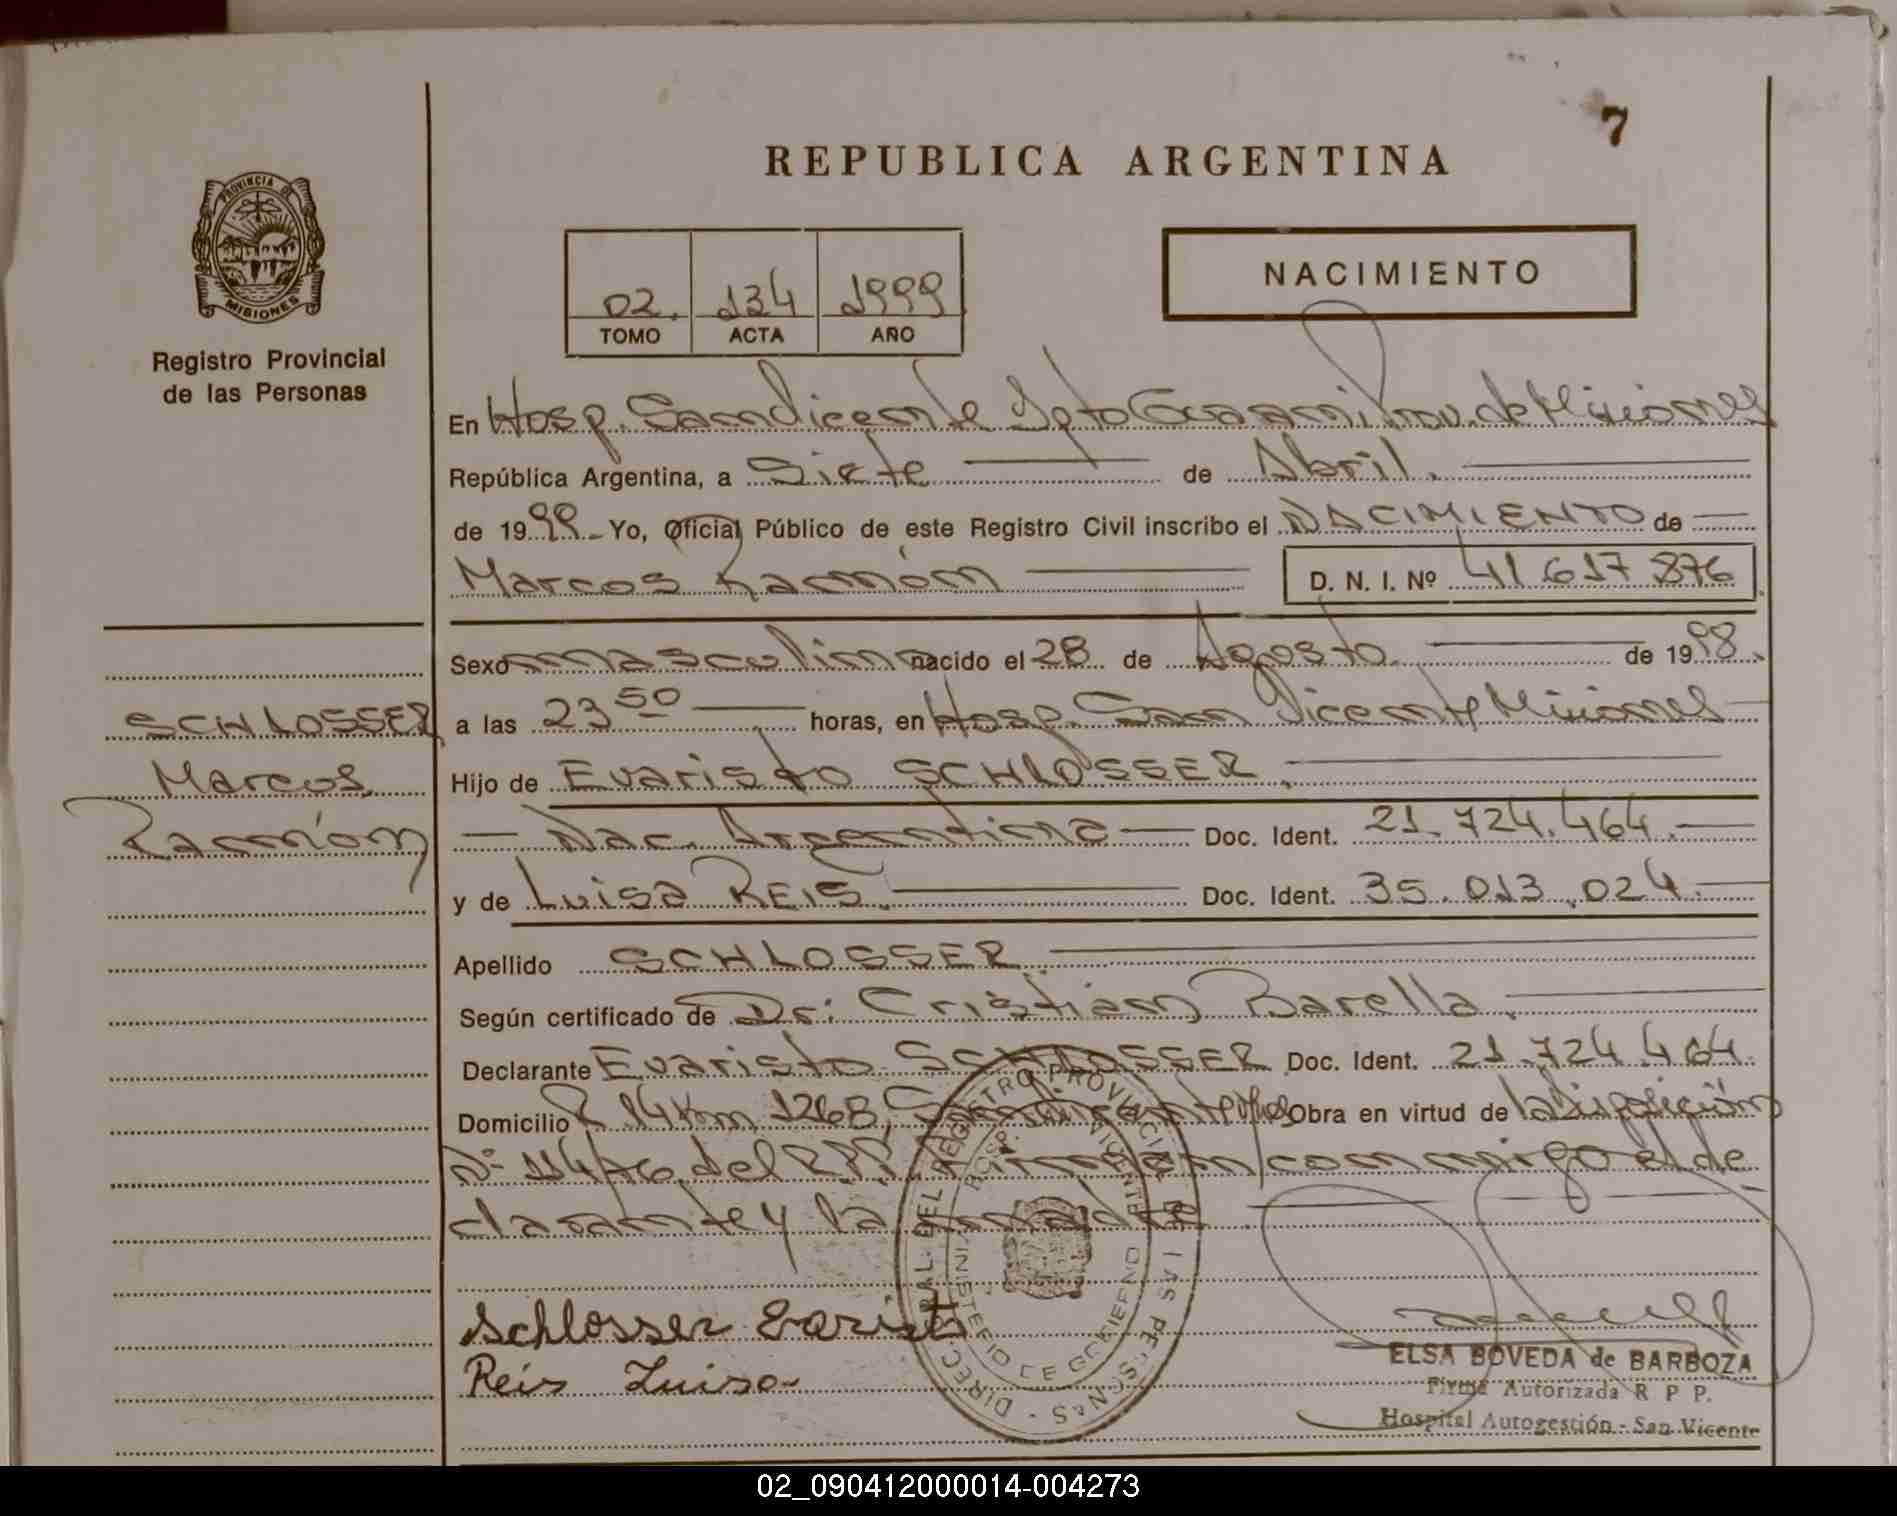 7
REPUBLICA ARGENTINA
PROVINCIA DE
MISIONES
Registro Provincial
de las Personas
NACIMIENTO
02. 134 1999
TOMO ACTA AÑO
En Hosp. San Vicente Dpto Guaraní, Prov. de Misiones
República Argentina, a Siete de Abril.
de 1999 Yo, Oficial Público de este Registro Civil inscribo el NACIMIENTO de
Marcos Ramón D. N. I. Nº 41 617 876
Sexo masculino nacido el 28 de Agosto de 1998.
SCHLOSSER a las 23 50 horas, en Hosp. San Vicente Misiones
Marcos Hijo de Evaristo SCHLOSSER.
Ramón Nac. Argentina Doc. Ident. 21.724.464.
y de Luisa REIS. Doc. Ident. 35.013.024.
Apellido SCHLOSSER
Según certificado de Dr: Cristian Barella.
Declarante Evaristo SCHLOSSER Doc. Ident. 21.724.464.
Domicilio R 14 Km 1268, San Vicente Obra en virtud de la Disposición
Nº 114/76 del RPP. Firman conmigo el de
clarante y la madre.
DIREC. GRAL. DEL REGISTRO PROVINCIAL DE LAS PERSONAS
HOSP. S. VICENTE
MINISTERIO DE GOBIERNO
Schlosser Earist
Reis Luisa
ELSA BOVEDA de BARBOZA
Firma Autorizada R P P.
Hospital Autogestión - San Vicente
02_090412000014-004273